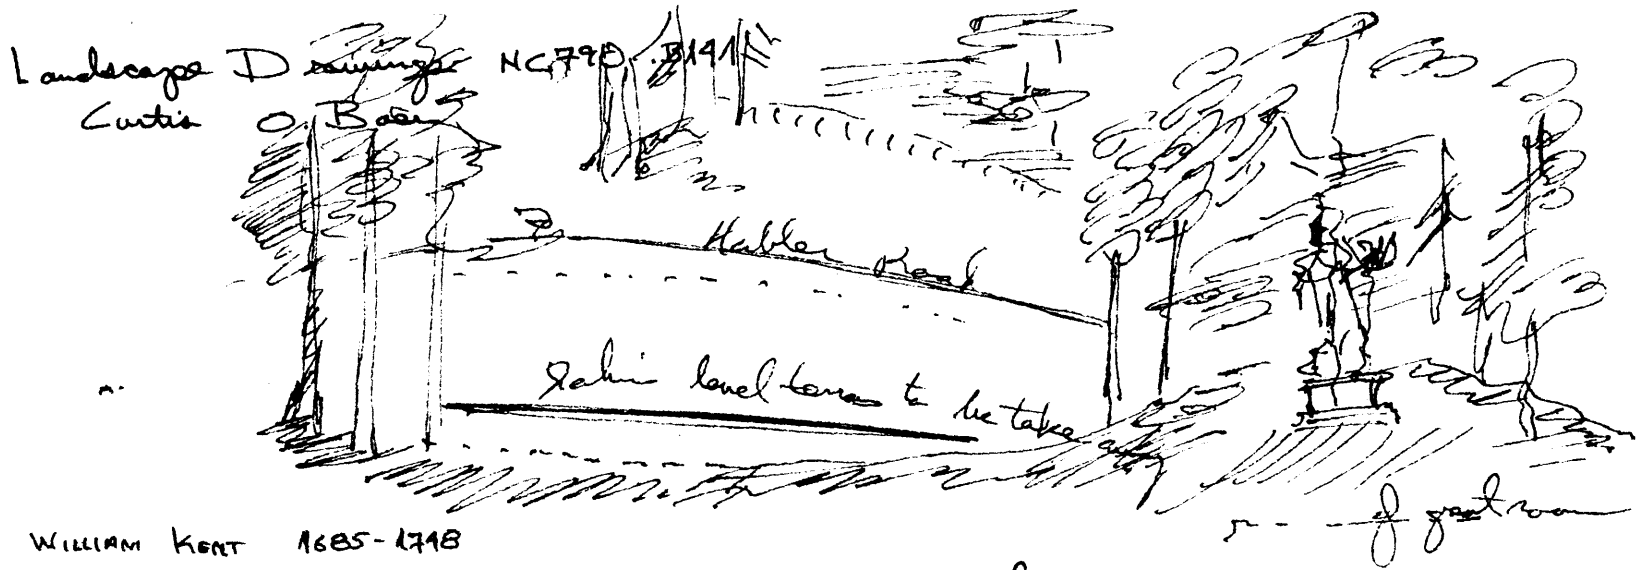 Landscape Drawings NC790.B191
Curtis O Baer
Road
level terras to be take
of great room
WILLIAM KENT 1685-1748